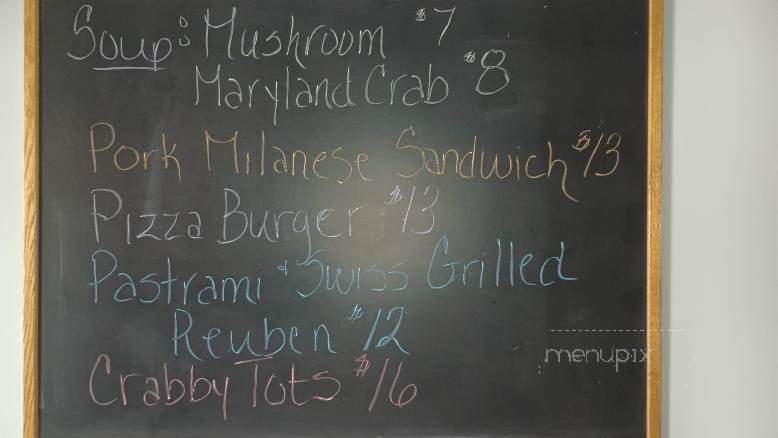 Soup: Mushroom $7
Maryland Crab $8
Pork Milanese Sandwich $13
Pizza Burger $13
Pastrami & Swiss Grilled
Reuben $12
Crabby Tots $16
menupix